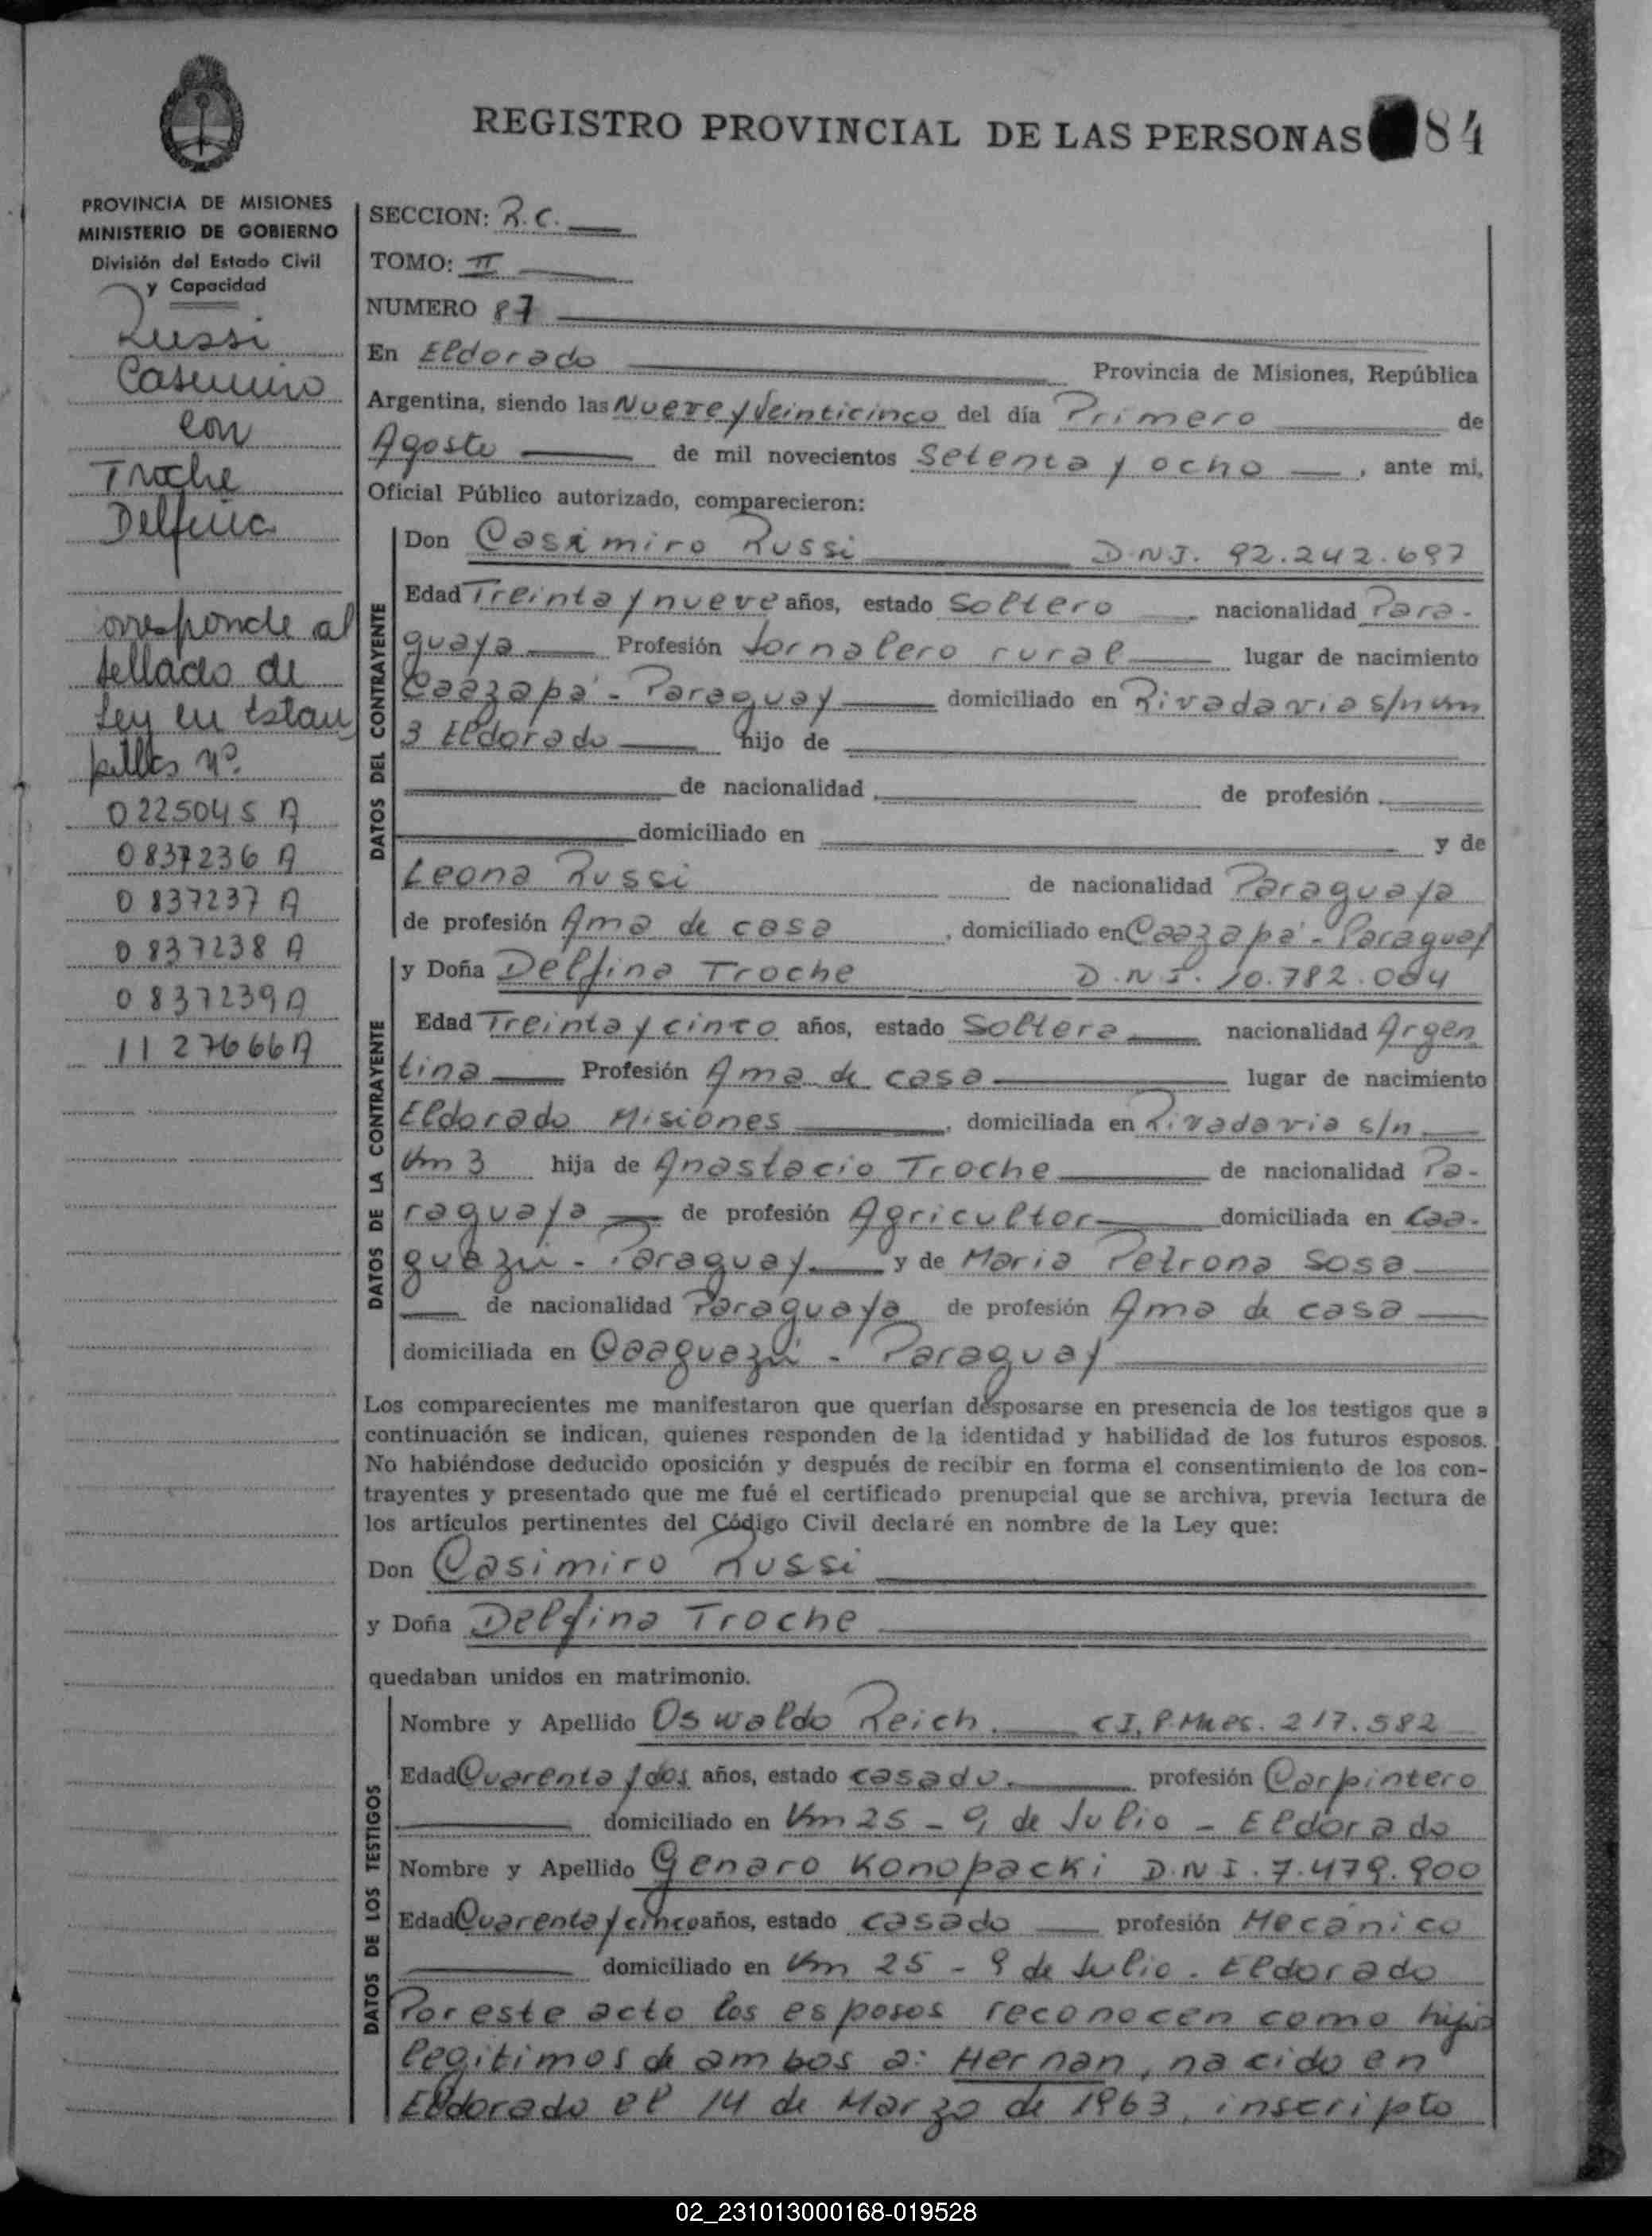 REGISTRO PROVINCIAL DE LAS PERSONAS 84
PROVINCIA DE MISIONES
MINISTERIO DE GOBIERNO
División del Estado Civil
y Capacidad
Russi
Casimiro
con
Troche
Delfina
orresponde al
sellado de
Ley en Estam
pillas Nº
0225045 A
0837236 A
0837237 A
0837238 A
0837239 A
1127666 A
SECCION: R.C.
TOMO: II
NUMERO 87
En Eldorado Provincia de Misiones, República
Argentina, siendo las Nueve y Veinticinco del día Primero de
Agosto de mil novecientos Setenta y ocho, ante mi,
Oficial Público autorizado, comparecieron:
DATOS DEL CONTRAYENTE
Don Casimiro Russi D.N.I. 92.242.697
Edad Treinta y nueve años, estado Soltero nacionalidad Para-
guaya Profesión Jornalero rural lugar de nacimiento
Caázapá - Paraguay domiciliado en Rivadavia s/n Km
3 Eldorado hijo de
de nacionalidad de profesión
domiciliado en y de
Leona Russi de nacionalidad Paraguaya
de profesión Ama de casa, domiciliado en Caazapá - Paraguay
DATOS DE LA CONTRAYENTE
y Doña Delfina Troche D.N.I. 10.782.004
Edad Treinta y cinco años, estado Soltera nacionalidad Argen
tina Profesión Ama de casa lugar de nacimiento
Eldorado Misiones, domiciliada en Rivadavia s/n
Km 3 hija de Anastacio Troche de nacionalidad Pa-
raguaya de profesión Agricultor domiciliada en Caa-
guazú - Paraguay y de Maria Petrona Sosa
de nacionalidad Paraguaya de profesión Ama de casa
domiciliada en Caaguazú - Paraguay
Los comparecientes me manifestaron que querían desposarse en presencia de los testigos que a
continuación se indican, quienes responden de la identidad y habilidad de los futuros esposos.
No habiéndose deducido oposición y después de recibir en forma el consentimiento de los con-
trayentes y presentado que me fué el certificado prenupcial que se archiva, previa lectura de
los artículos pertinentes del Código Civil declaré en nombre de la Ley que:
Don Casimiro Russi
y Doña Delfina Troche
quedaban unidos en matrimonio.
DATOS DE LOS TESTIGOS
Nombre y Apellido Oswaldo Reich. CI. P. Mnes. 217.582
Edad Quarenta y dos años, estado casado. profesión Carpintero
domiciliado en Km 25 - 9 de Julio - Eldorado
Nombre y Apellido Genaro Konopacki D.N.I. 7.479.900
Edad Quarenta y cinco años, estado casado profesión Mecánico
domiciliado en Km 25 - 9 de Julio. Eldorado
Por este acto los esposos reconocen como hijos
legitimos de ambos a: Hernan, nacido en
Eldorado el 14 de Marzo de 1963, inscripto
02_231013000168-019528